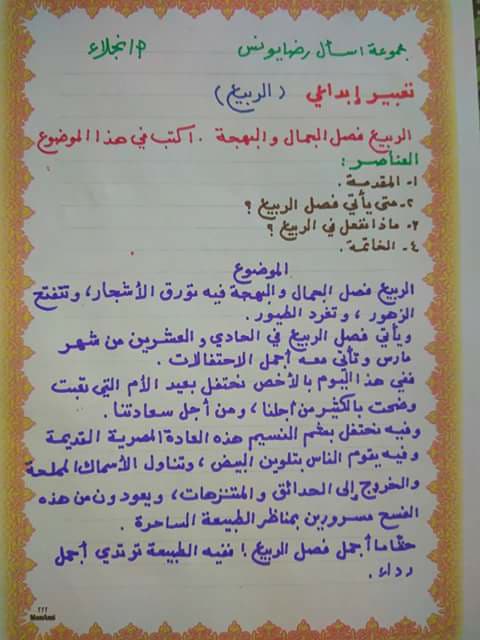 مجموعة اسأل رضا يونس م/ انجلاء
تعبير إبداعي (الربيع)
الربيع فصل الجمال والبهجة . اكتب في هذا الموضوع
العناصر :
١- المقدمة .
٢- متى يأتي فصل الربيع ؟
٣- ماذا نفعل في الربيع ؟
٤- الخاتمة .
الموضوع
الربيع فصل الجمال والبهجة فيه تورق الأشجار، وتتفتح
الزهور ، وتغرد الطيور .
ويأتي فصل الربيع في الحادي والعشرين من شهر
مارس وتأتي معه أجمل الاحتفالات .
ففي هذا اليوم بالأخص نحتفل بعيد الأم التي تعبت
وضحت بالكثير من أجلنا ، ومن أجل سعادتنا .
وفيه نحتفل بشم النسيم هذه العادة المصرية القديمة
وفيه يقوم الناس بتلوين البيض ، وتناول الأسماك المملحة
والخروج إلى الحدائق والمتنزهات، ويعودون من هذه
الفسح مسرورين بمناظر الطبيعة الساحرة .
حقا ما أجمل فصل الربيع ! ففيه الطبيعة ترتدي أجمل
رداء .
٢٢٢